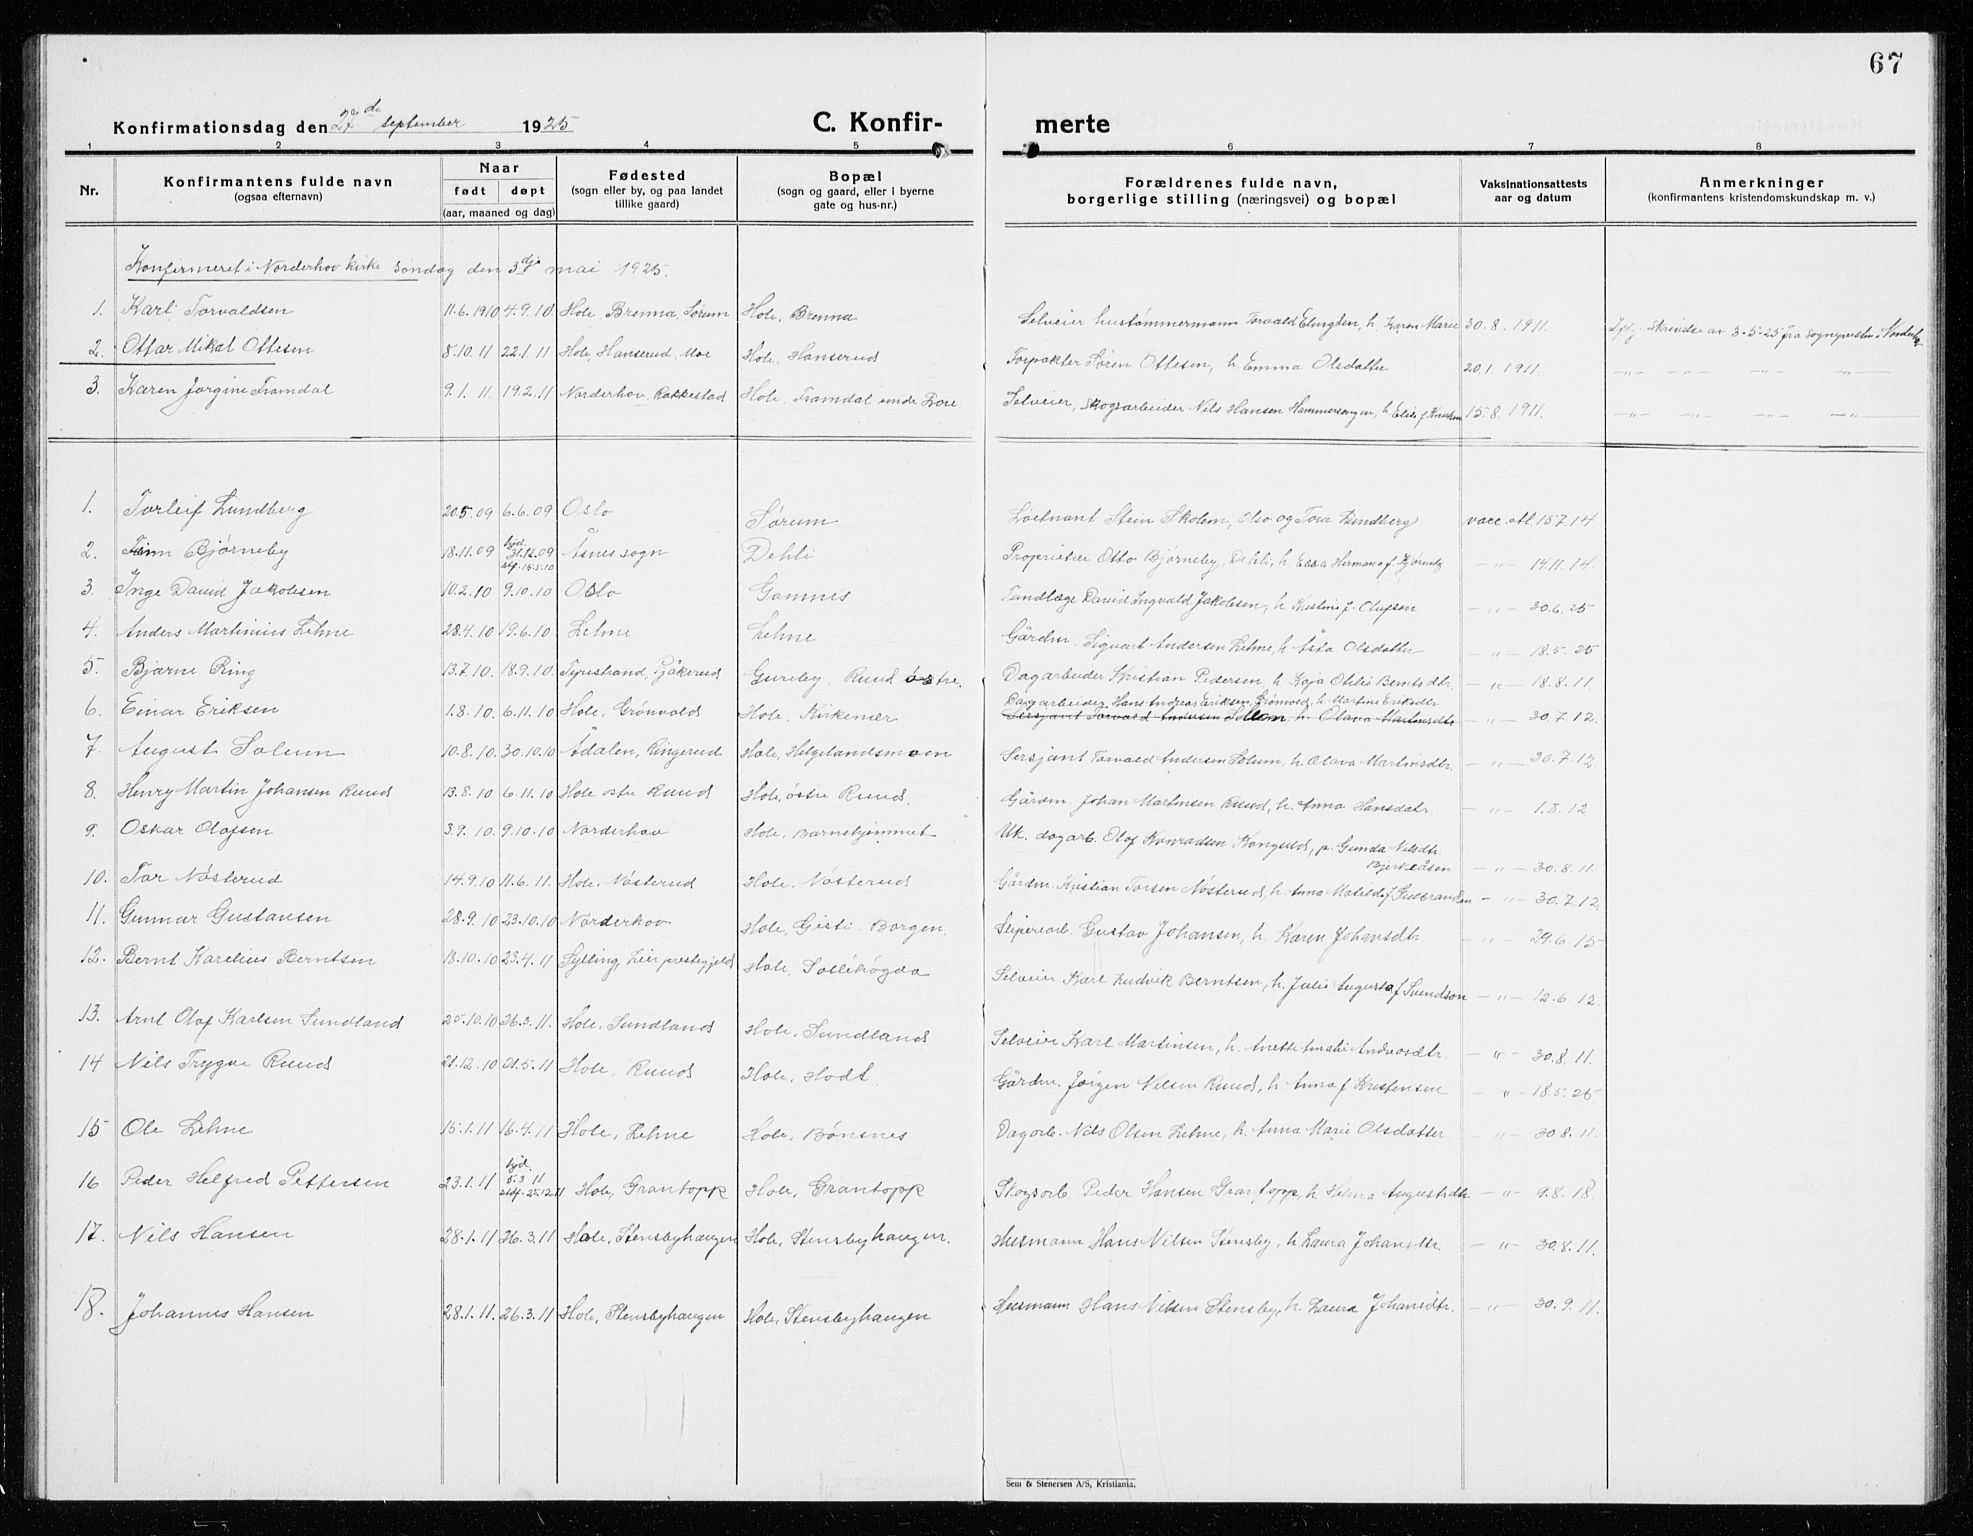 67
Konfirmationsdag den 27de september 1925
C. Konfir- merte
1 2 3 4 5 6 7 8
Nr.
Konfirmantens fulde navn
(ogsaa efternavn)
Naar
født døpt
(aar, maaned og dag)
Fødested
(sogn eller by, og paa landet
tillike gaard)
Bopæl
(sogn og gaard, eller i byerne
gate og hus-nr.)
Forældrenes fulde navn,
borgerlige stilling (næringsvei) og bopæl
Vaksinationsattests
aar og datum
Anmerkninger
(konfirmantens kristendomskundskap m. v.)
Konfirmeret i Norderhov kirke søndag den 3dje mai 1925.
1. Karl Torvaldsen 11.6.1910 4.9.10 Hole Brenna, Sørum Hole, Brenna Selveier hustømmermann Torvald h. Karen Marie 30.8.1911. Ifølg. skrivelse av 3-5-25 fra sognepresten i Norderhov
2. Ottar Mikal Ottesen 8.10.11 22.1.11 Hole, Hanserud, Moe Hole, Hanserud Forpakter Søren Ottesen, h. Emma Olsdatter 20.1.1911. —"— —"— —"— —"—
3. Karen Jorgine Framdal 9.1.11 19.2.11 Norderhov, Rakkestad Hole, Framdal under Selveier, skogsarbeider Nils Hansen h. Elise f. Knutsen 15.8.1911. —"— —"— —"— —"—
1. Torleif Lundberg 20.5.09 6.6.09 Oslo Sørum Løitnant Stein Skolem, Oslo og Tora Lundberg vacc. att. 15.7.14
2. Finn Bjørneby 18.11.09 hjd. 31.12.09 stf. 15.5.10 Åsnes sogn Dehli Proprietær Otto Bjørneby, Dehli, h. Ella Hermana f. Bjørneby —"— 14.11.14.
3. Inge David Jakobsen 10.2.10 9.10.10 Oslo Gomnes Tandlæge David Ingvald Jakobsen, h. Kristine J. Olufsen —"— 30.6.25
4. Anders Martinius Lehne 28.4.10 19.6.10 Lehne Lehne Gårdm. Sigvart Andersen Lehne, h. Åsta Olsdatter —"— 18.5.25
5. Bjarne Ring 13.7.10 18.9.10 Tyristrand, Gureby, Ruud østre. Dagarbeider Kristian Pedersen, h. Kaja Othilie Berntsdtr. —"— 18.8.11.
6. Einar Eriksen 1.8.10. 6.11.10 Hole, Grønvold Hole, Kirkemær Dagarbeider Hans Andreas Eriksen Grønvold, h. Martine Eriksdtr.
Sersjant Torvald Andersen Solum h. Olava Martinsdtr —"— 30.7.12.
7. August Solum 10.8.10 30.10.10 Ådalen, Ringerud Hole, Helgelandsmoen Sersjant Torvald Andersen Solum, h. Olava Martinsdtr. —"— 30.7.12
8. Henry Martin Johansen Ruud 13.8.10 6.11.10 Hole østre Ruud Hole, østre Ruud. Gårdm. Johan Martinsen Ruud, h. Anna Hansdatr. —"— 1.8.12
9. Oskar Olafsen 3.9.10 9.10.10 Norderhov Hole, Barnehjemmet Uk. dagarb. Olaf Konradsen p. Gunda Nilsdtr.
Bjerkeåsen —"— 30.8.11.
10. Tor Nøsterud 14.9.10 11.6.11. Hole, Nøsterud Hole, Nøsterud Gårdm. Kristian Torsen Nøsterud, h. Anna Matilde f. Gulbrandsen —"— 30.7.12.
11. Gunnar Gustavsen 28.9.10 23.10.10 Norderhov Hole, Gisti, Borgen. Gustav Johansen, h. Karen Johansdtr. —"— 29.6.15
12. Bernt Karelius Berntsen 18.10.10 23.4.11 Sylling, Lier prestegjeld Hole, Sollihøgda Selveier Karl Ludvik Berntsen, h. Julie Augusta f. Svendsen —"— 12.6.12.
13. Arnt Olaf Karlsen Sundland 25.10.10 26.3.11. Hole, Sundland Hole, Sundland Selveier Karl Martinsen, h. Anette Amalie Andorsdtr. —"— 30.8.11.
14 Nils Trygve Ruud 21.12.10 21.5.11 Hole, Ruud Hole, Hodt. Gårdm. Jørgen Nilsen Ruud, h. Anna f. Kristensen —"— 18.5.25
15 Ole Lehne 15.1.11 16.4.11 Hole, Lehne Hole, Bønsnes Dagarb. Nils Olsen Lehne, h. Anna Marie Olsdatter —"— 30.8.11.
16 Peder Helfred Pettersen 23.1.11 hjd. 5.3.11 stdf. 25.12.11 Hole, Grantopp Hole, Grantopp Skogsarb. Peder Hansen Grantopp, h. Helma Augustsdtr. —"— 9.8.18.
17. Nils Hansen 28.1.11 26.3.11 Hole, Stensbyhaugen Hole, Stensbyhaugen. Husmann Hans Nilsen Stensby, h. Laura Johansdtr. —"— 30.8.11.
18. Johannes Hansen 28.1.11. 26.3.11 Hole, Stensbyhaugen Hole, Stensbyhaugen Husmann Hans Nilsen Stensby, h. Laura Johansdtr. —"— 30.9.11.
Sem & Stenersen A/S, Kristiania.